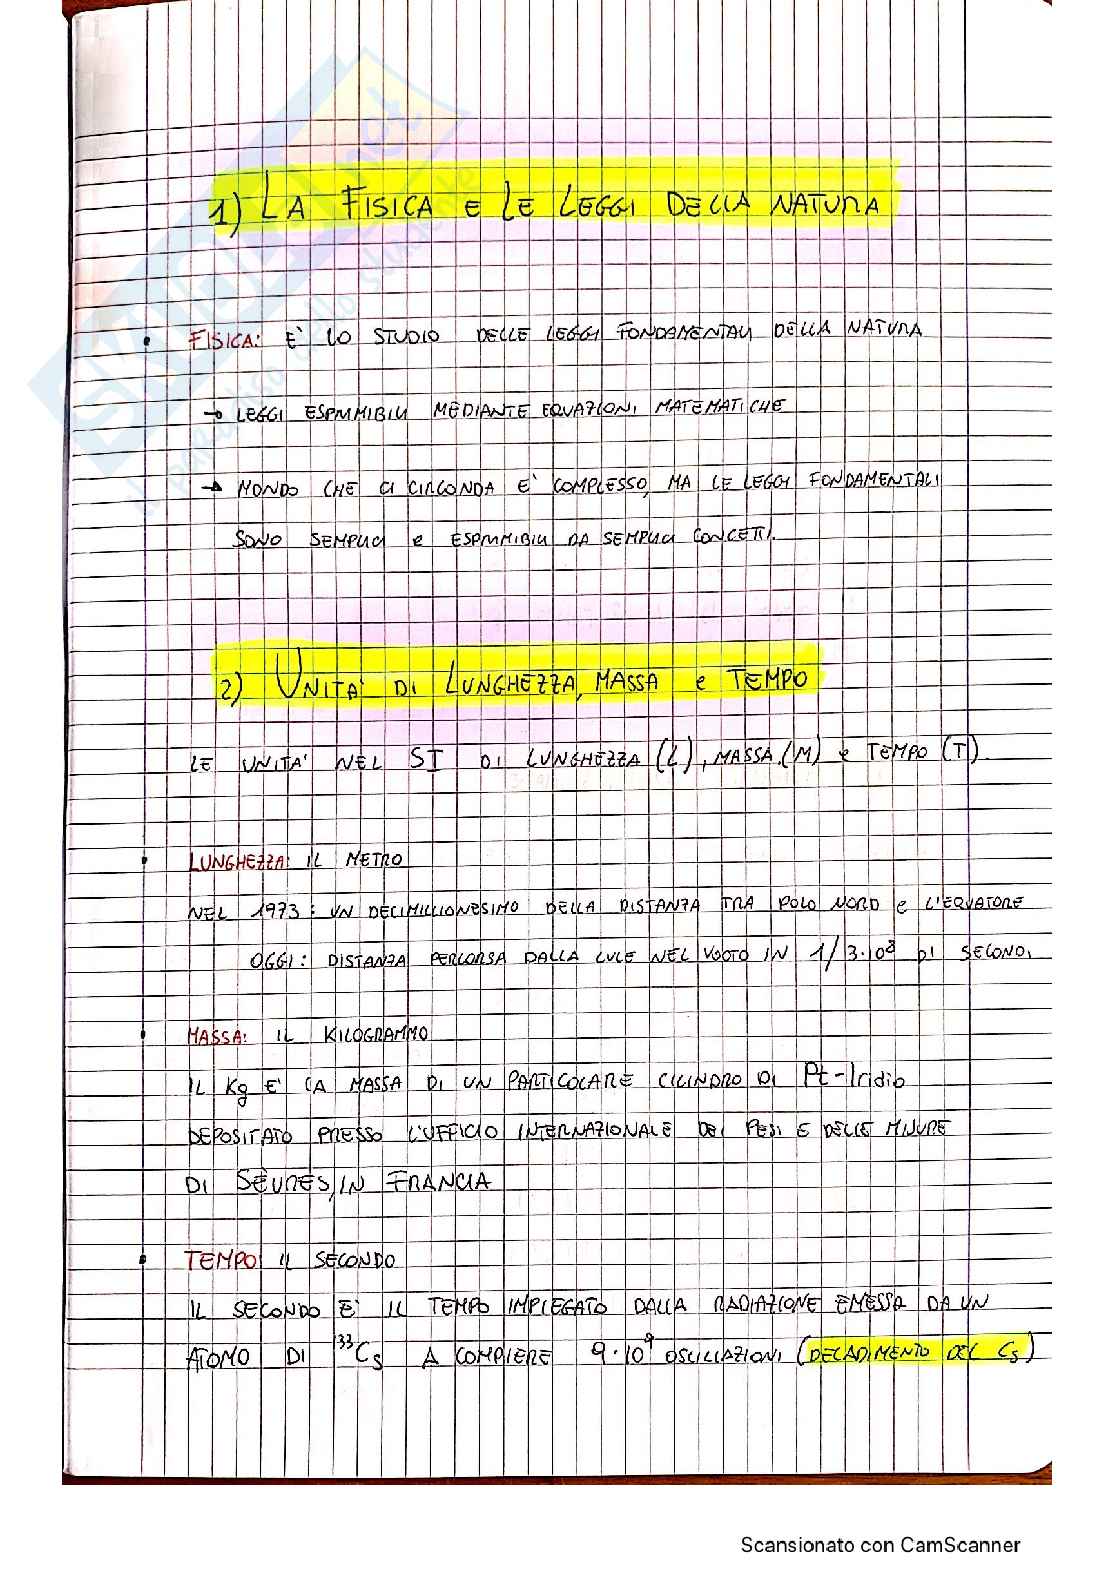 1) LA FISICA E LE LEGGI DELLA NATURA
• FISICA: E' LO STUDIO DELLE LEGGI FONDAMENTALI DELLA NATURA
→ LEGGI ESPRIMIBILI MEDIANTE EQUAZIONI MATEMATICHE
→ MONDO CHE CI CIRCONDA E' COMPLESSO, MA LE LEGGI FONDAMENTALI
SONO SEMPLICI e ESPRIMIBILI DA SEMPLICI CONCETTI.
2) UNITA' DI LUNGHEZZA, MASSA e TEMPO
LE UNITA' NEL SI DI LUNGHEZZA (L), MASSA (M) e TEMPO (T).
• LUNGHEZZA: IL METRO
NEL 1973: UN DECIMILLIONESIMO DELLA DISTANZA TRA POLO NORD e L'EQUATORE
OGGI: DISTANZA PERCORSA DALLA LUCE NEL VUOTO IN 1/3·10⁸ DI SECONDI
• MASSA: IL KILOGRAMMO
IL Kg E' LA MASSA DI UN PARTICOLARE CILINDRO DI Pt-Iridio
DEPOSITATO PRESSO L'UFFICIO INTERNAZIONALE DEI PESI E DELLE MISURE
DI SÈVRES, IN FRANCIA
• TEMPO: IL SECONDO
IL SECONDO E' IL TEMPO IMPIEGATO DALLA RADIAZIONE EMESSA DA UN
ATOMO DI ¹³³Cs A COMPIERE 9·10⁹ OSCILLAZIONI (DECADIMENTO DEL Cs)
Scansionato con CamScanner